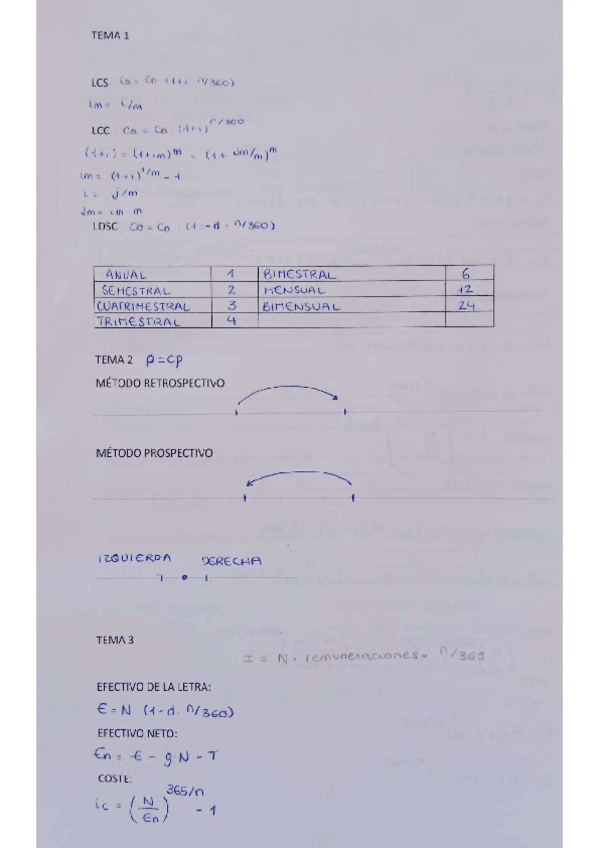 TEMA 1
LCS Cn = C0 (1+i n/360)
im = i/m
LCC Cn = C0 (1+i)^n/360
(1+i) = (1+im)^m = (1+ Jm/m)^m
im = (1+i)^1/m - 1
i = j/m
Jm = im m
LDSC C0 = Cn (1 - d · n/360)
ANUAL 1 BIMESTRAL 6
SEMESTRAL 2 MENSUAL 12
CUATRIMESTRAL 3 BIMENSUAL 24
TRIMESTRAL 4
TEMA 2 p = cp
MÉTODO RETROSPECTIVO
MÉTODO PROSPECTIVO
IZQUIERDA DERECHA
TEMA 3
I = N · remuneraciones · n/365
EFECTIVO DE LA LETRA:
E = N (1 - d · n/360)
EFECTIVO NETO:
En = E - gN - T
COSTE:
ic = (N/En)^365/n - 1